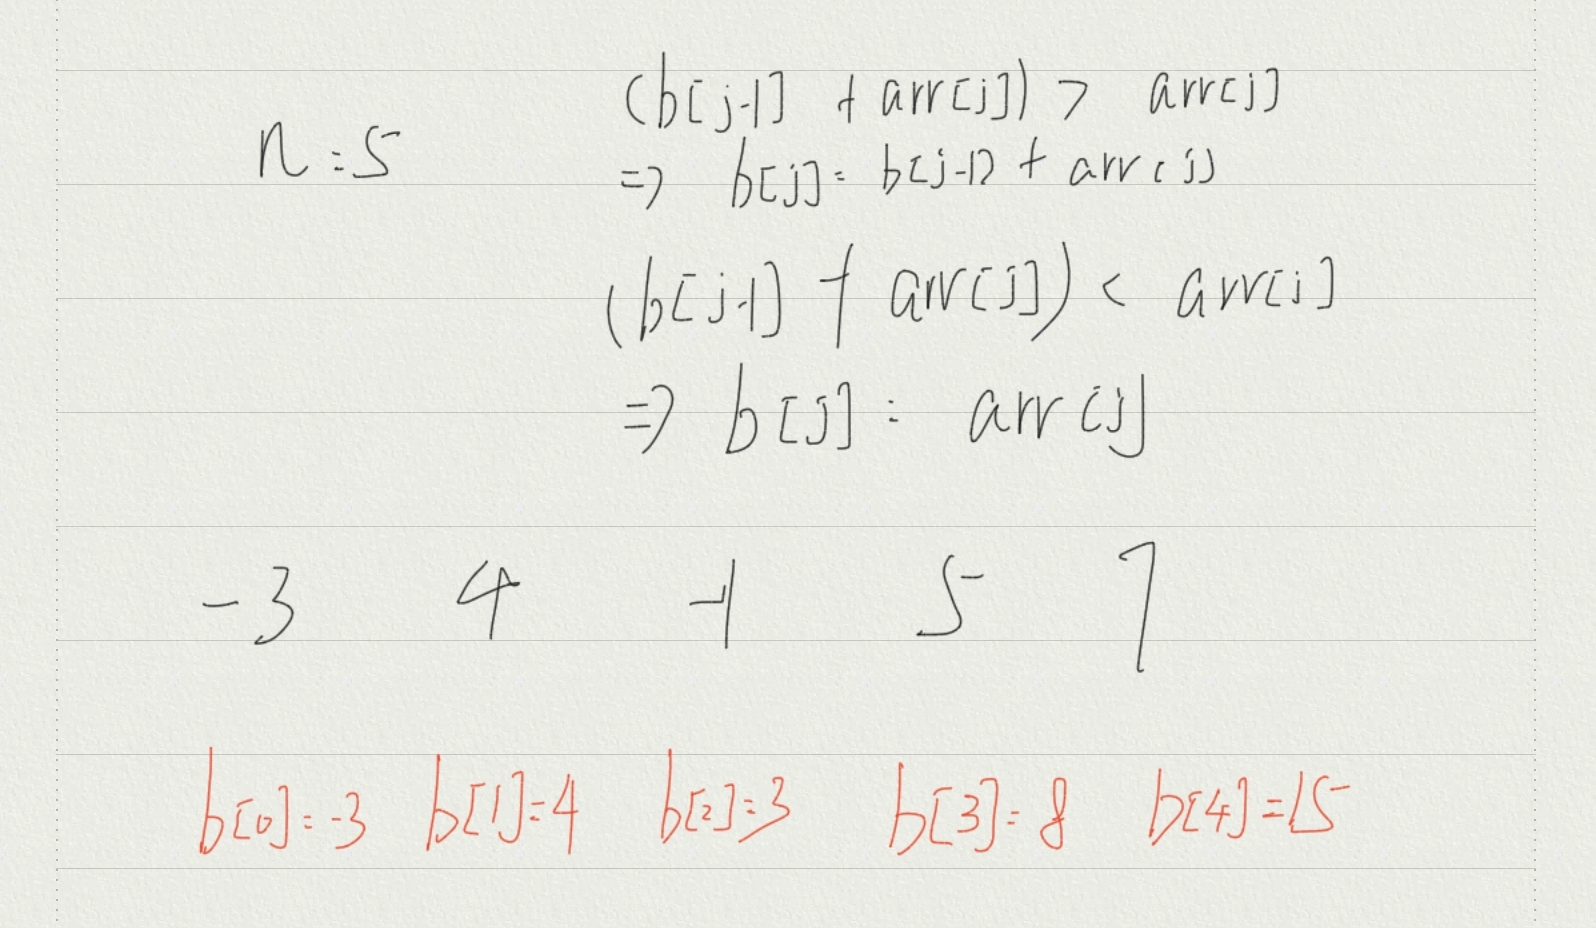 (b[j-1] + arr[j]) > arr[j]
n=5
=> b[j]= b[j-1] + arr[j]
(b[j-1] + arr[j]) < arr[j]
=> b[j] = arr[j]
-3 4 -1 5 7
b[0]=-3 b[1]=4 b[2]=3 b[3]=8 b[4]=15